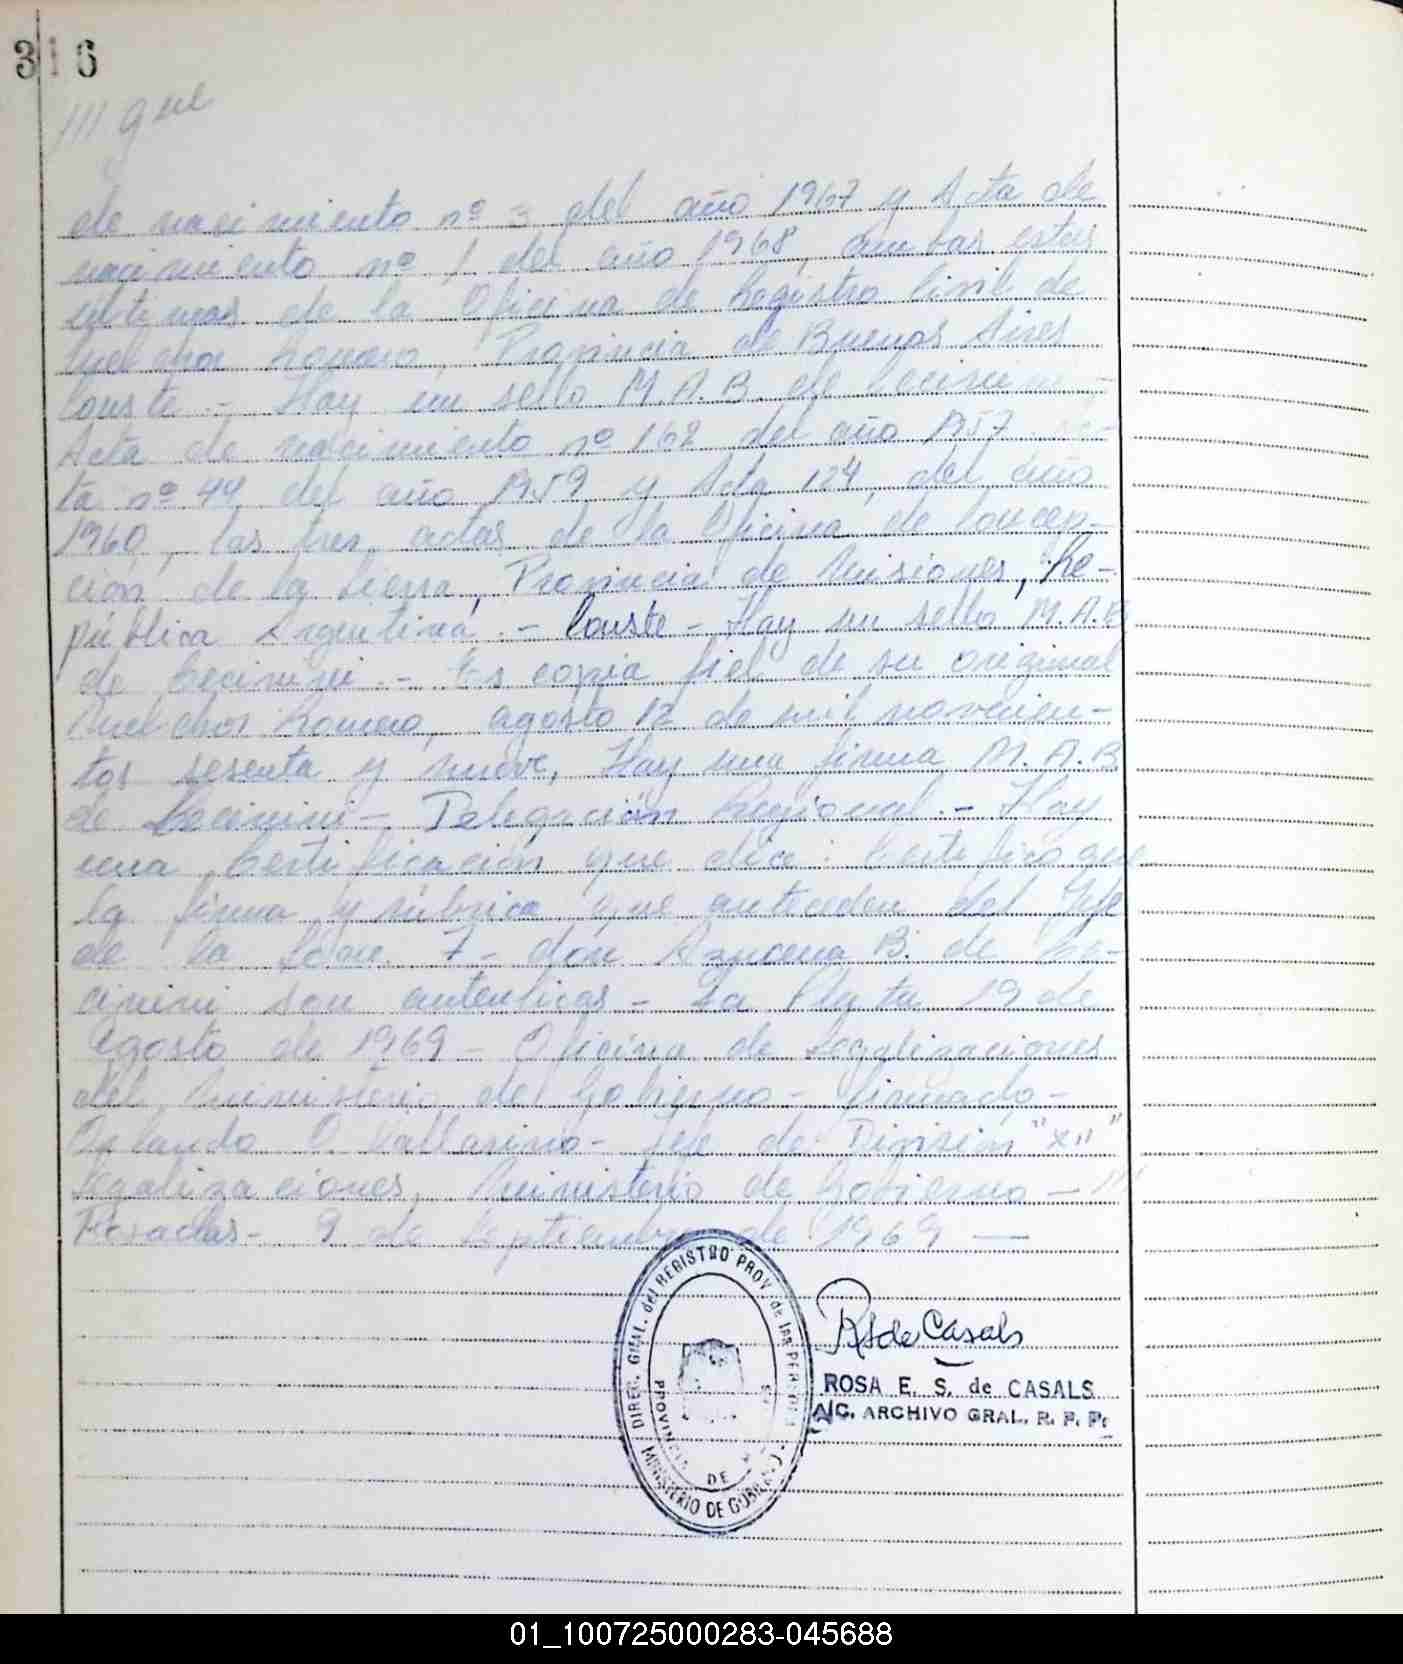 316
/// que
de nacimiento nº 3 del año 1967 y Acta de
nacimiento nº 1 del año 1968, ambas estas
ultimas de la Oficina de Registro Civil de
Melchor Romero, Provincia de Buenos Aires
Conste.- Hay un sello M.A.B. de Cecinini -
Acta de nacimiento nº 162 del año 1957
ta nº 44 del año 1959 y Acta 124, del año
1960, las tres actas de la Oficina de Concep-
ción de la Sierra, Provincia de Misiones, Re-
pública Argentina.- Conste - Hay un sello M.A.B
de Cecinini.- Es copia fiel de su original
Melchor Romero, agosto 12 de mil novecien-
tos sesenta y nueve, Hay una firma M.A.B.
de Cecinini - Delegación Regional.- Hay
una Certificación que dice: Certifico que
la firma y rúbrica que anteceden del Jefe
de la Secc. 7 - don Azucena B. de Ce-
cinini son autenticas - La Plata 19 de
Agosto de 1969 - Oficina de Legalizaciones
del Ministerio de Gobierno - firmado -
Orlando O. Vallarino - Jefe de Division "XII"
Legalizaciones, Ministerio de Gobierno - ///
Posadas - 9 de Septiembre de 1969 —
DIREC. GRAL. del REGISTRO PROV. de las PERSONAS
PROVINCIA DE
MINISTERIO DE GOBIERNO
RSde Casals
ROSA E. S. de CASALS
A/C. ARCHIVO GRAL. R. P. P.
01_100725000283-045688